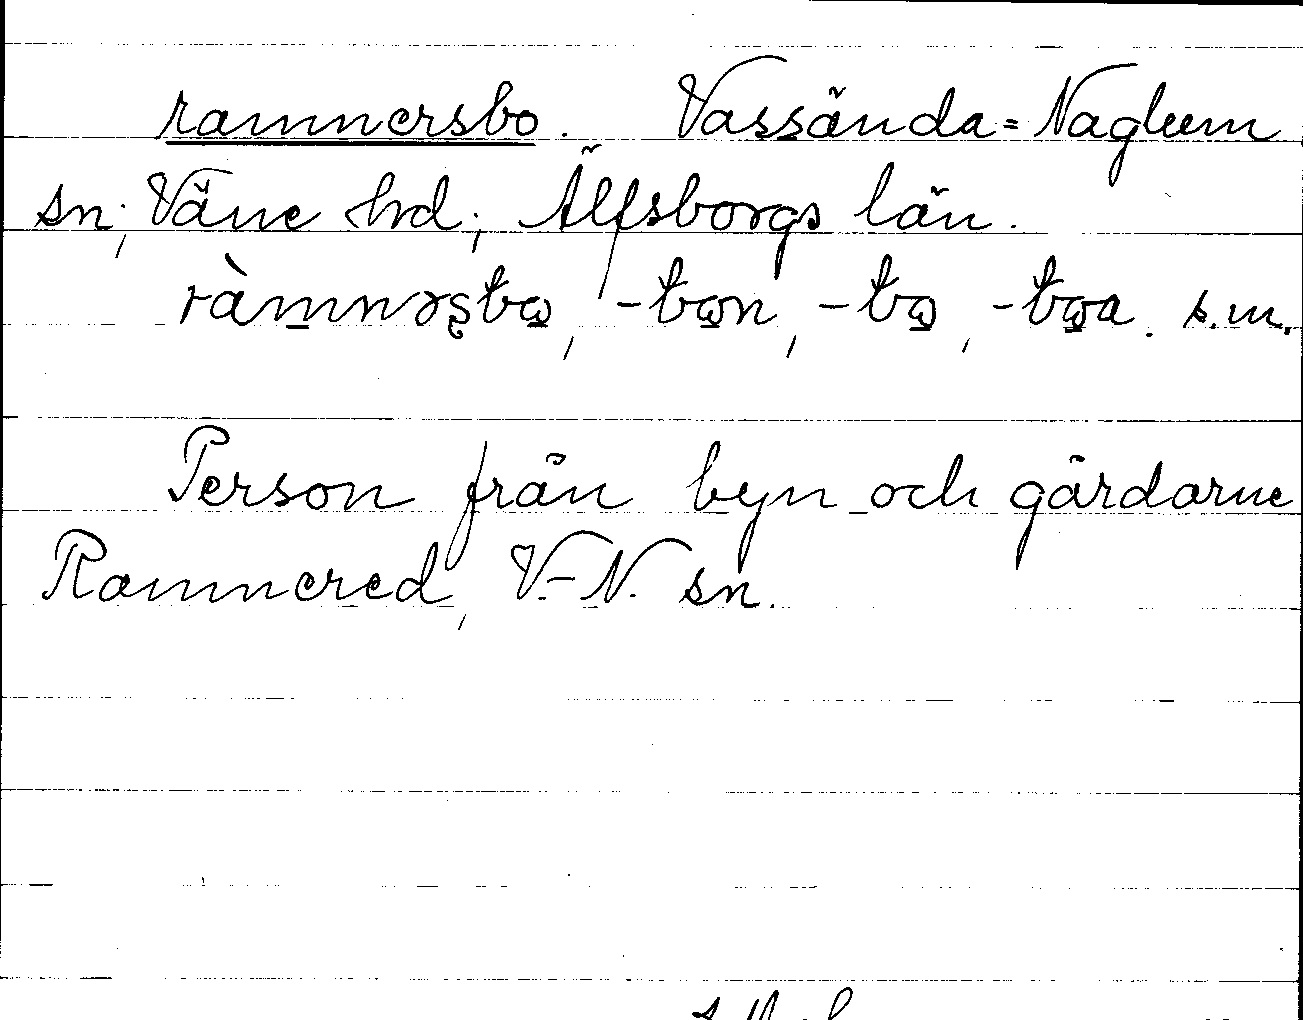 ramnersbo. Vassända=Naglum
sn; Väne hd; Älfsborgs län.
ràmnərsbo, -bon, -bo, -boa. s.m.
Person från byn och gårdarne
Ramnered, V.-N. sn.